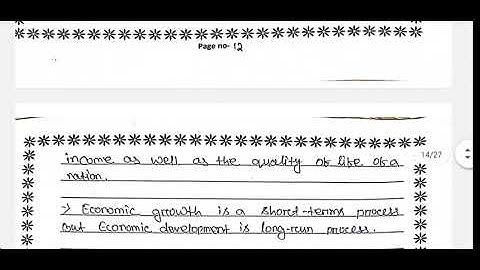 Page no- 12
income as well as the quality of life of a
nation.
14/27
-> Economic growth is a short-terms process
but Economic development is long-run process.